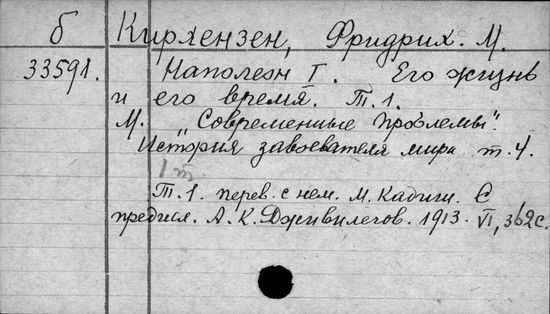 б Кирхензен, Фридрих. М.
33591. Наполеон I. Его жизнь
и его время. Т. 1.
М. „Современные проблемы".
История завоевателя мира т. 4.
1 т
Т. 1. перев. с нем. М. Кадиш. С
предисл. А. К. Дживилегов. 1913. VI, 362 с.